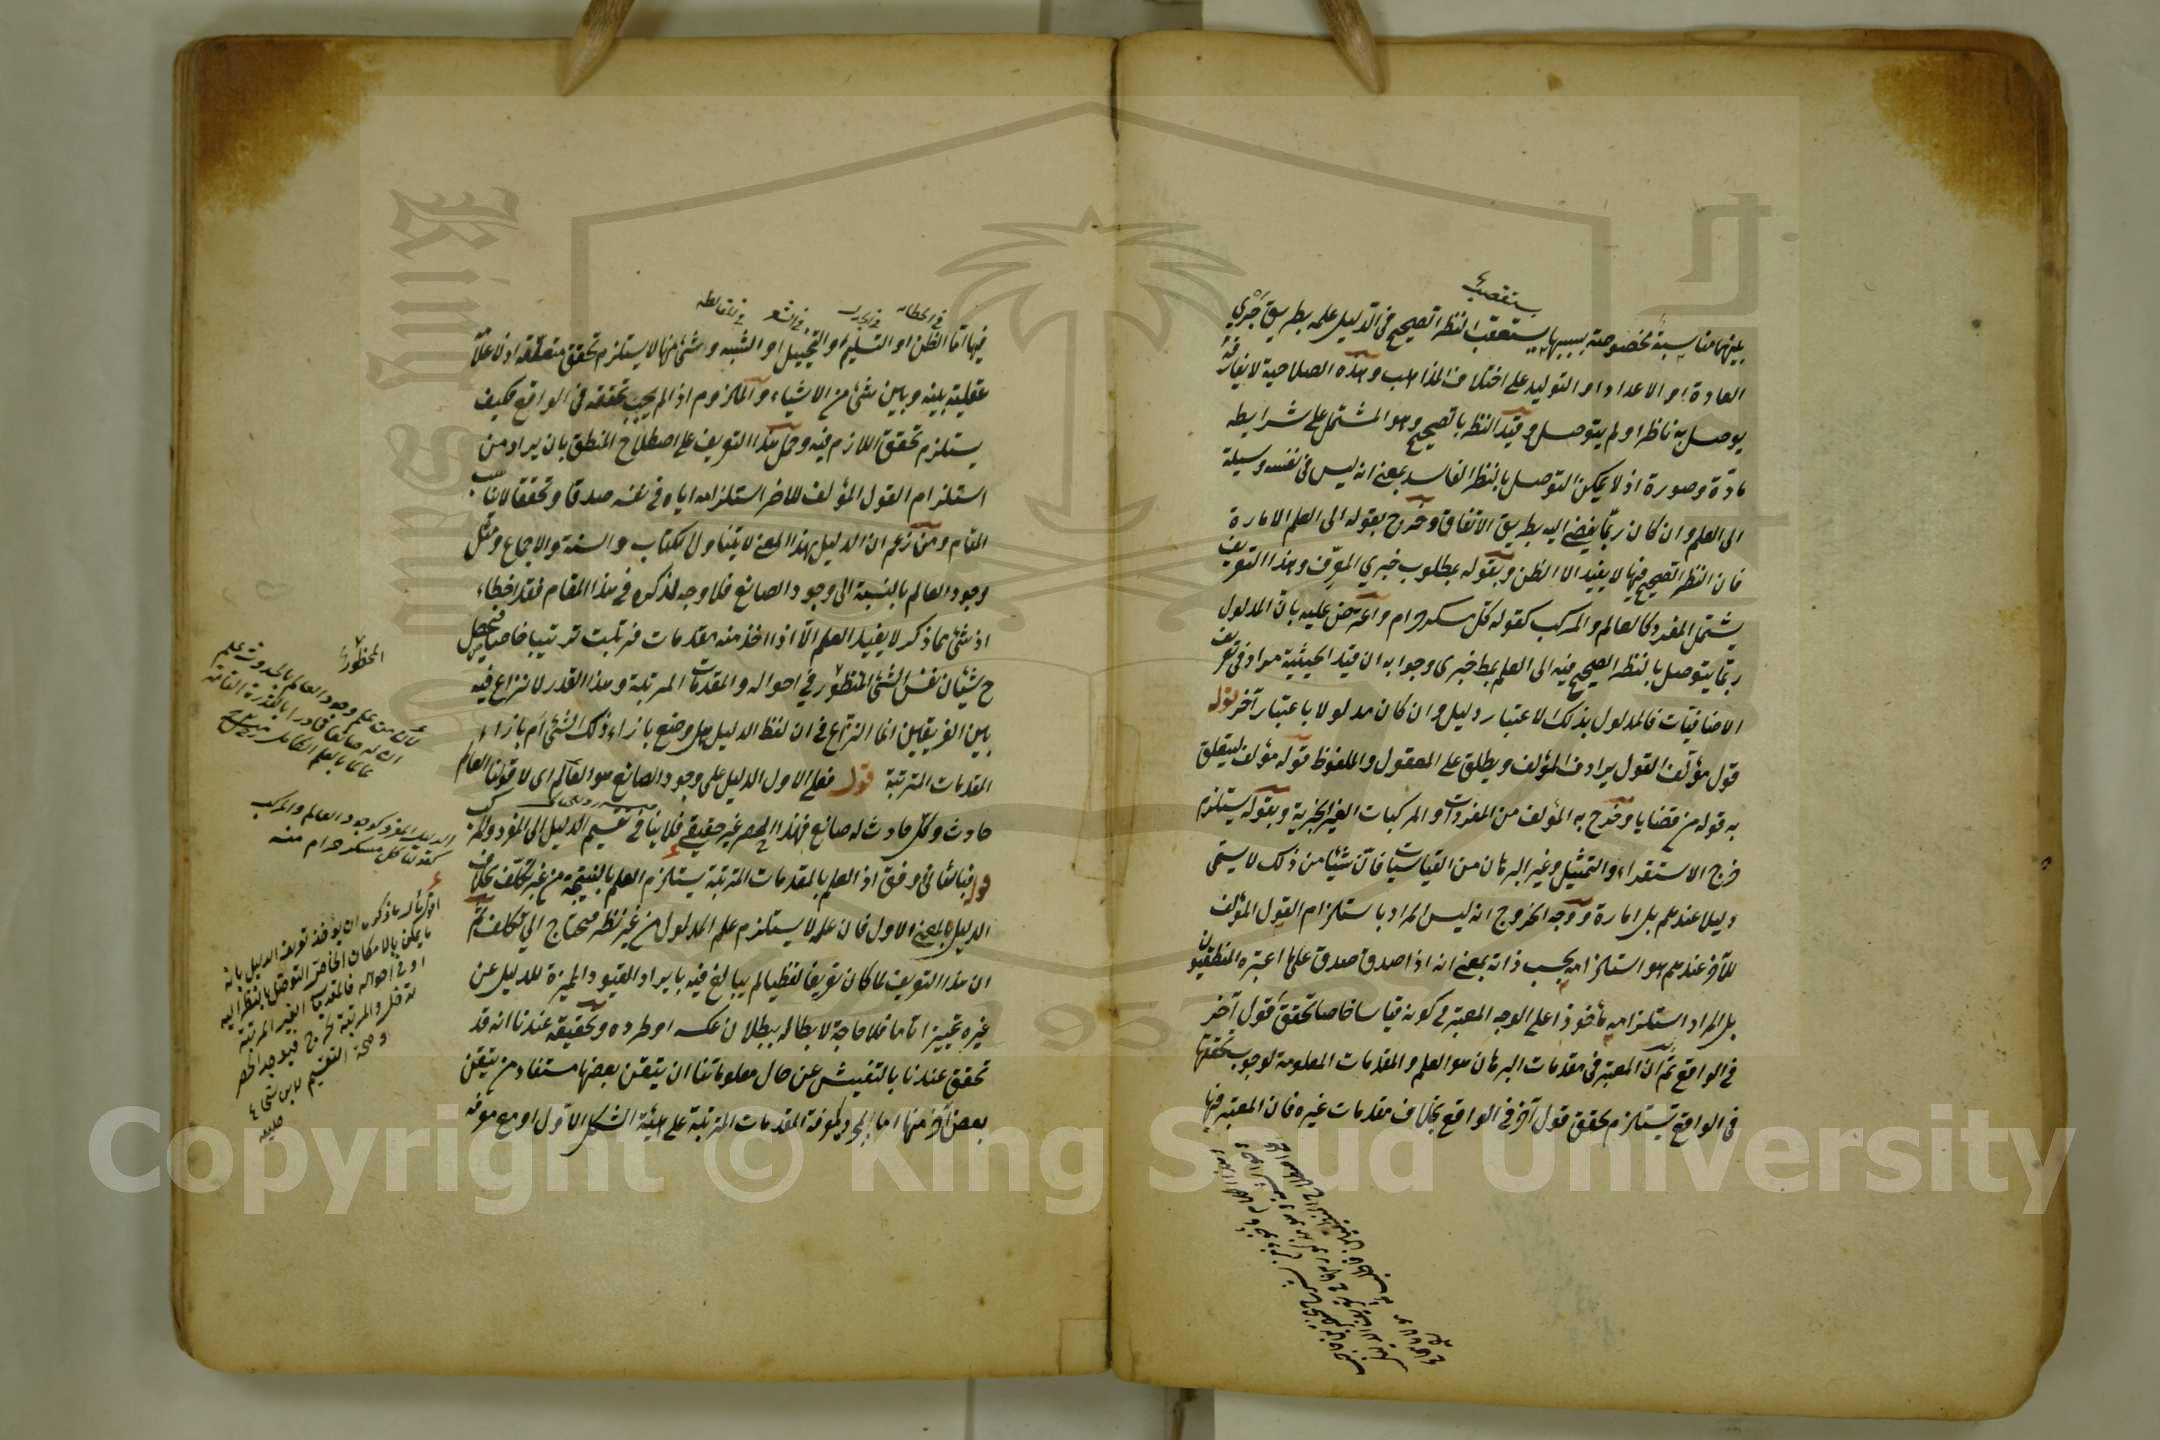 بينهما مناسبة مخصوصة بسببها يستعقب النظر الصحيح في الدليل علمه بطريق جري
العادة او الاعداد او التوليد على اختلاف المذاهب وهذه الصلاحية لا يفارقه
يوصل به ناظر او لم يتوصل وقيد النظر بالصحيح وهو المشتمل على شرايطه
مادة وصورة اذ لا يمكن التوصل بالنظر الفاسد بمعنى انه ليس في نفسه وسيلة
الى العلم وان كان ربما يفضي اليه بطريق الاتفاق وخرج بقوله الى العلم الامارة
فان النظر الصحيح فيها لا يفيد الا الظن وبقوله بمطلوب خبري المعرف وهذا التعريف
يشتمل المفرد كالعالم والمركب كقوله كل مسكر حرام واعترض عليه بان المدلول
ربما يتوصل بالنظر الصحيح فيه الى العلم بمط خبري وجوابه ان قيد الحيثية مراد في تعريف
الاضافيات فالمدلول بذلك الاعتبار دليل وان كان مدلولا باعتبار آخر قوله
قول مؤلف القول يرادف المؤلف ويطلق على المعقول والملفوظ قوله مؤلف ليتعلق
به قوله من قضايا وخرج به المؤلف من المفردات والمركبات الغير الخبرية وبقوله يستلزم
خرج الاستقراء والتمثيل وغير البرهان من القياسات فان شيئا من ذلك لا يسمى
دليلا عندهم بل امارة ووجه الخروج انه ليس المراد باستلزام القول المؤلف
للآخر عندهم هو استلزامه بحسب ذاته بمعنى انه اذا صدق صدق على ما اعتبره المنطقيون
بل المراد استلزامه مأخوذا على الوجه المعتبر في كونه قياسا خاصا تحقق قول آخر
في الواقع ثم ان المعتبر في مقدمات البرهان هو العلم والمقدمات المعلومة لوجوب تحققها
في الواقع تستلزم تحقق قول آخر في الواقع بخلاف مقدمات غيره فان المعتبر فيها
في الخطابة في الجدل في الشعر في المغالطة
فيها اما الظن او التسليم او التخييل او الشبه وشئ منها لا يستلزم تحقق متعلقه اذ لا علاقة
عقلية بينه وبين شئ من الاشياء والملزوم اذا لم يجب تحققه في الواقع فكيف
يستلزم تحقق اللازم فيه وحمل هذا التعريف على اصطلاح المنطق بان يراد من
استلزام القول المؤلف للاخر استلزامه اياه في نفسه صدقا وتحققا لا يناسب
المقام ومن زعم ان الدليل بهذا المعنى لا يتناول الكتاب والسنة والاجماع ومثل
وجود العالم بالنسبة الى وجود الصانع فلا وجه لذكره في هذا المقام فقد اخطاء
اذ شئ مما ذكر لا يفيد العلم الا اذا اخذ منه مقدمات فرتبت ترتيبا خاصا فيحصل
ح شيئان نفس الشئ المنظور في احواله والمقدمات المرتبة وهذا القدر لا نزاع فيه
بين الفريقين انما النزاع في ان لفظ الدليل هل وضع بازاء ذلك الشئ ام بازاء
المقدمات المرتبة قوله فعلى الاول الدليل على وجود الصانع هو العالم اي لا قولنا العالم
حادث وكل حادث له صانع فهذا الحصر غير حقيقي فلا ينافي تقسيم الدليل الى المفرد والمركب
قوله فبالثاني اوفق اذ العلم بالمقدمات المرتبة يستلزم العلم بالنتيجة من غير تكلف بخلاف
الدليل بالمعنى الاول فان علمه لا يستلزم علم المدلول من غير نظر محتاج الى تكلف ثم
ان هذا التعريف لما كان تعريفا لفظيا لم يبالغ فيه بايراد القيود المميزة للدليل عن
غيره تمييزا تاما فلا حاجة لابطاله ببطلان عكسه او طرده وتحقيقه عندنا انه قد
تحقق عندنا بالتفتيش عن حال معلوماتنا ان يتقن بعضها مستفاد من يتقن
بعض آخر منها اما المجرد كمعرفة المقدمات المرتبة على هيئة الشكل الاول او مع معرفة
المنظور
لان من علم وجود العالم بالحدوث علم
ان له صانعا قادرا بالقدرة التامة
عالما بالعلم الكامل
الدليل المفرد كوجود العالم والمركب
كقولنا كل مسكر حرام منه
Copyright © King Saud University
King Saud University
1957